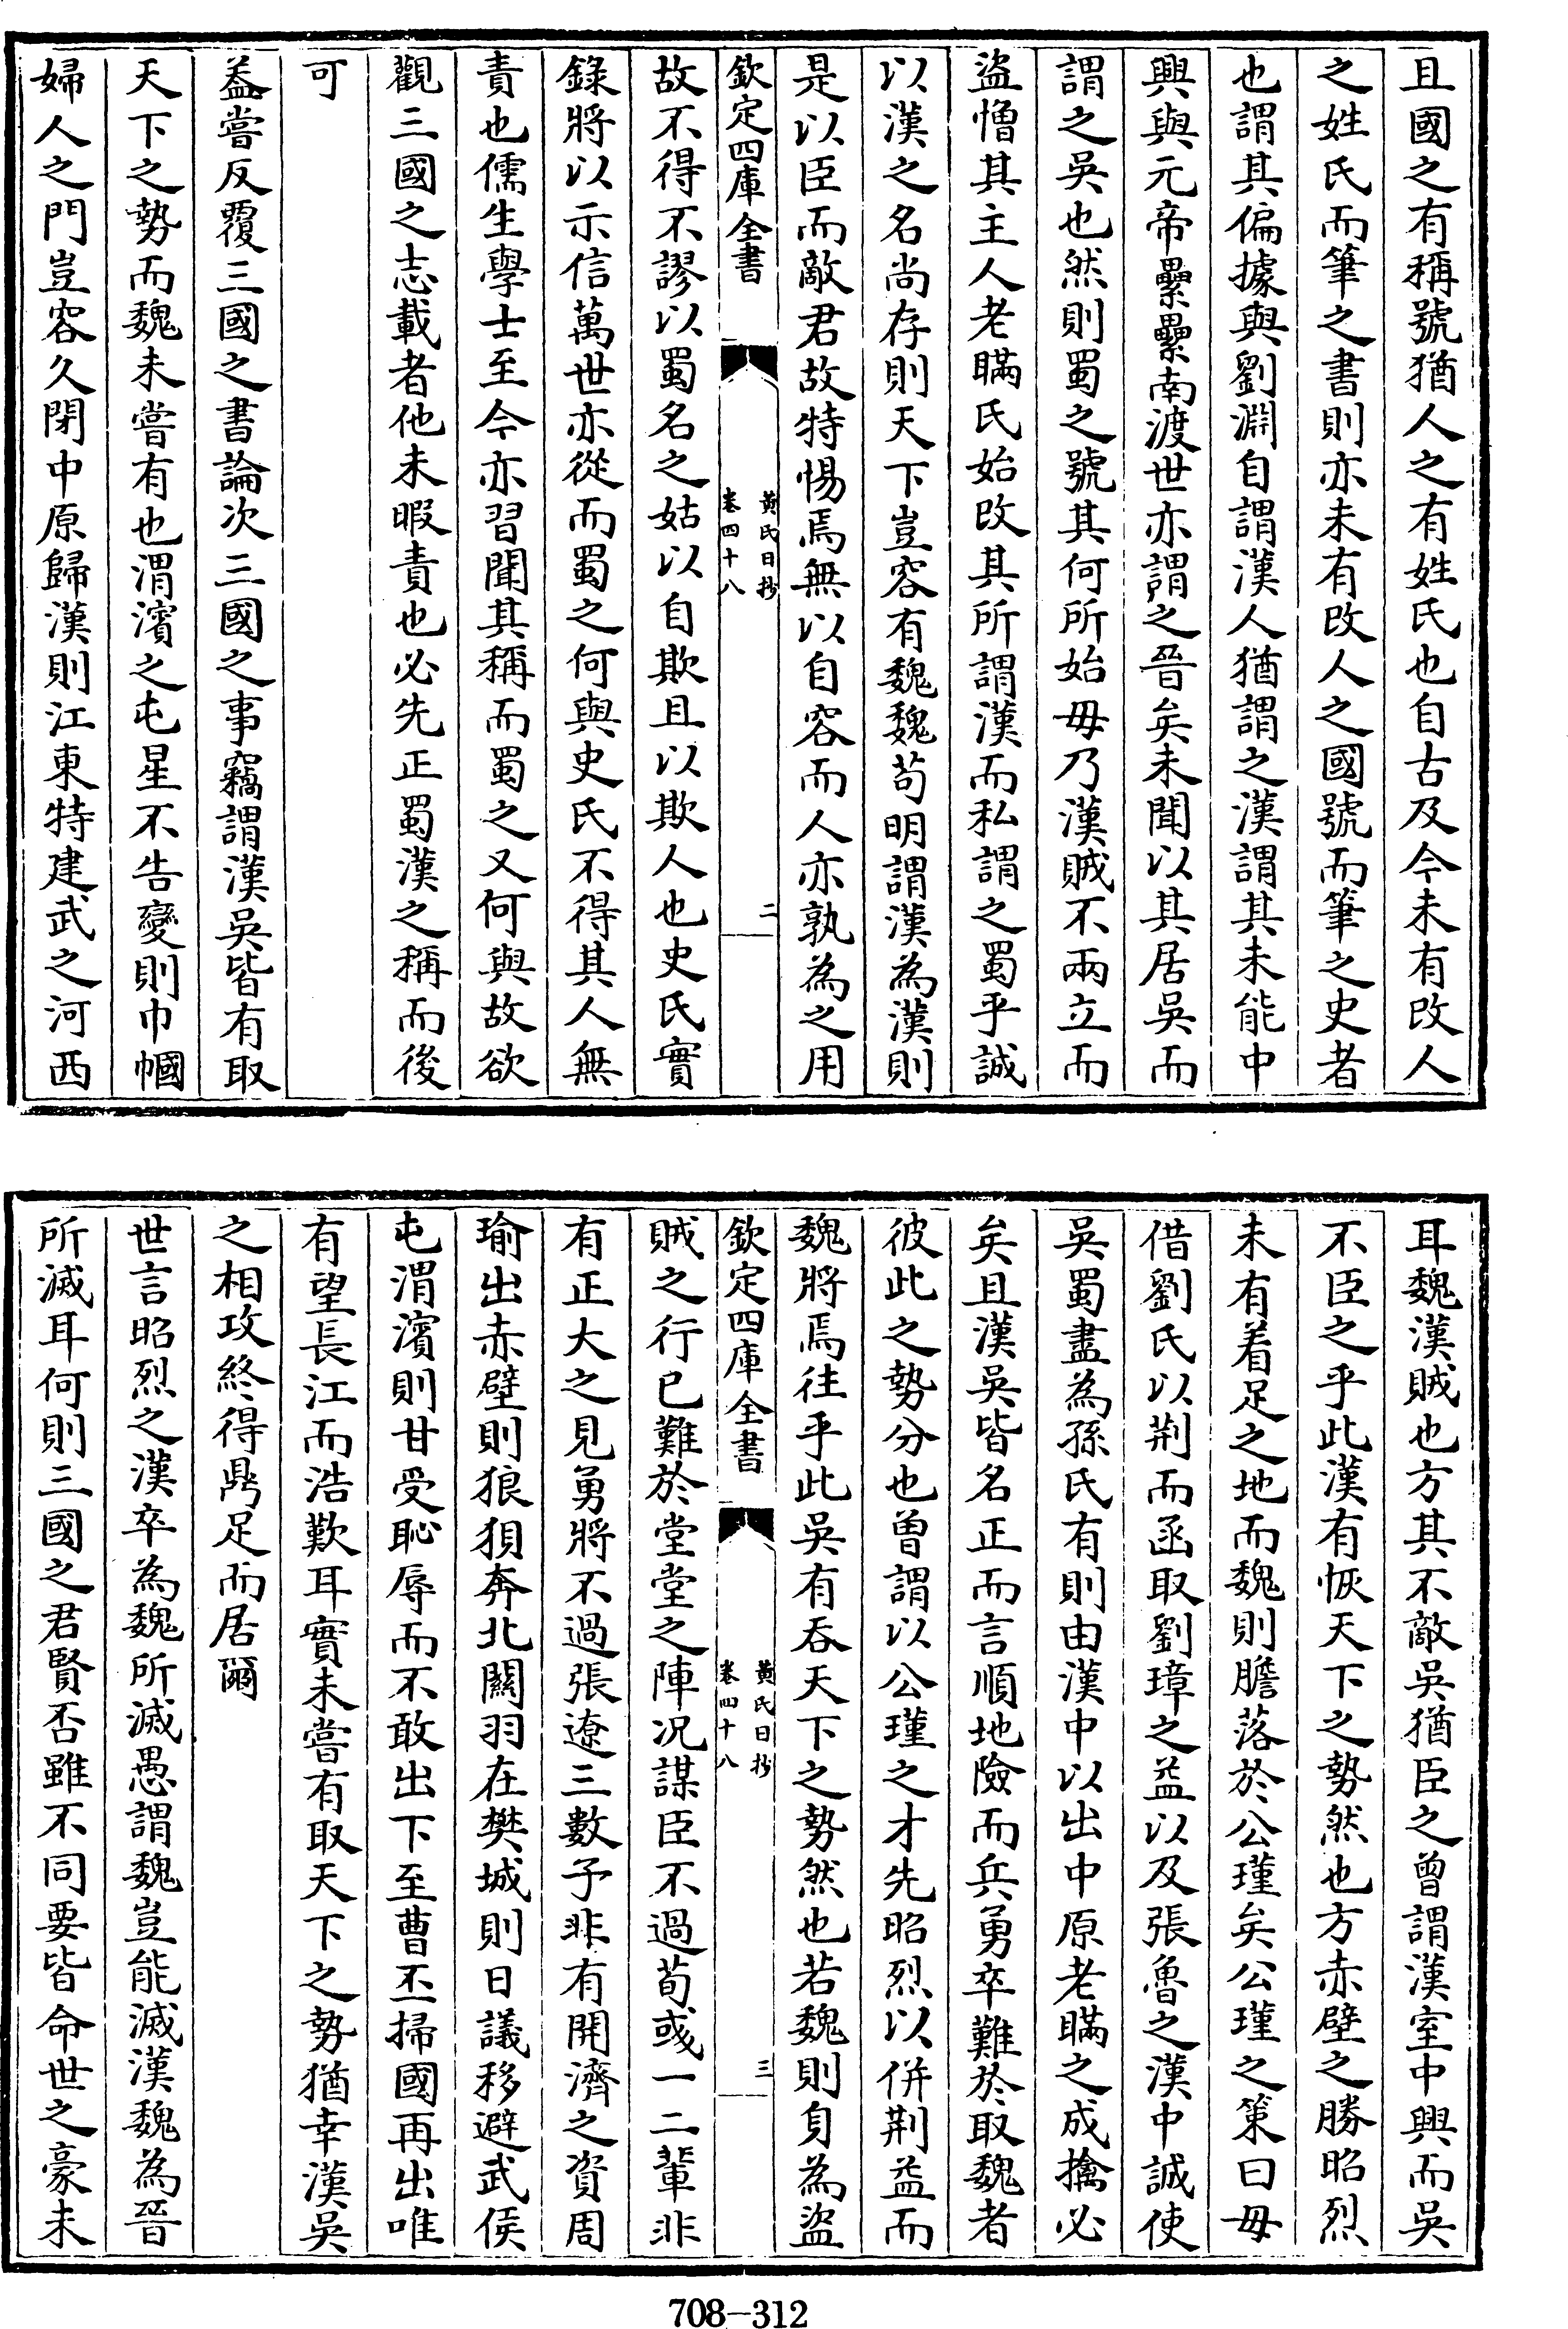 且國之有稱號猶人之有姓氏也自古及今未有改人
之姓氏而筆之書則亦未有改人之國號而筆之史者
也謂其偏據與劉淵自謂漢人猶謂之漢謂其未能中
興與元帝纍纍南渡世亦謂之晉矣未聞以其居吳而
謂之吳也然則蜀之號其何所始毋乃漢賊不兩立而
盜憎其主人老瞞氏始改其所謂漢而私謂之蜀乎誠
以漢之名尚存則天下豈容有魏魏苟明謂漢為漢則
是以臣而敵君故特惕焉無以自容而人亦孰為之用
欽定四庫全書
黃氏日抄
卷四十八
二
故不得不謬以蜀名之姑以自欺且以欺人也史氏實
錄將以示信萬世亦從而蜀之何與史氏不得其人無
責也儒生學士至今亦習聞其稱而蜀之又何與故欲
觀三國之志載者他未暇責也必先正蜀漢之稱而後
可
葢嘗反覆三國之書論次三國之事竊謂漢吳皆有取
天下之勢而魏未嘗有也渭濱之屯星不告變則巾幗
婦人之門豈容久閉中原歸漢則江東特建武之河西
耳魏漢賊也方其不敵吳猶臣之曾謂漢室中興而吳
不臣之乎此漢有恢天下之勢然也方赤壁之勝昭烈
未有着足之地而魏則膽落於公瑾矣公瑾之策曰毋
借劉氏以荆而函取劉璋之益以及張魯之漢中誠使
吳蜀盡為孫氏有則由漢中以出中原老瞞之成擒必
矣且漢吳皆名正而言順地險而兵勇卒難於取魏者
彼此之勢分也曾謂以公瑾之才先昭烈以併荆益而
魏將焉往乎此吳有吞天下之勢然也若魏則身為盜
欽定四庫全書
黃氏日抄
卷四十八
三
賊之行已難於堂堂之陣况謀臣不過荀彧一二輩非
有正大之見勇將不過張遼三數子非有開濟之資周
瑜出赤壁則狼狽奔北關羽在樊城則日議移避武侯
屯渭濱則甘受恥辱而不敢出下至曹丕掃國再出唯
有望長江而浩歎耳實未嘗有取天下之勢猶幸漢吳
之相攻終得鼎足而居爾
世言昭烈之漢卒為魏所滅愚謂魏豈能滅漢魏為晉
所滅耳何則三國之君賢否雖不同要皆命世之豪未
708-312